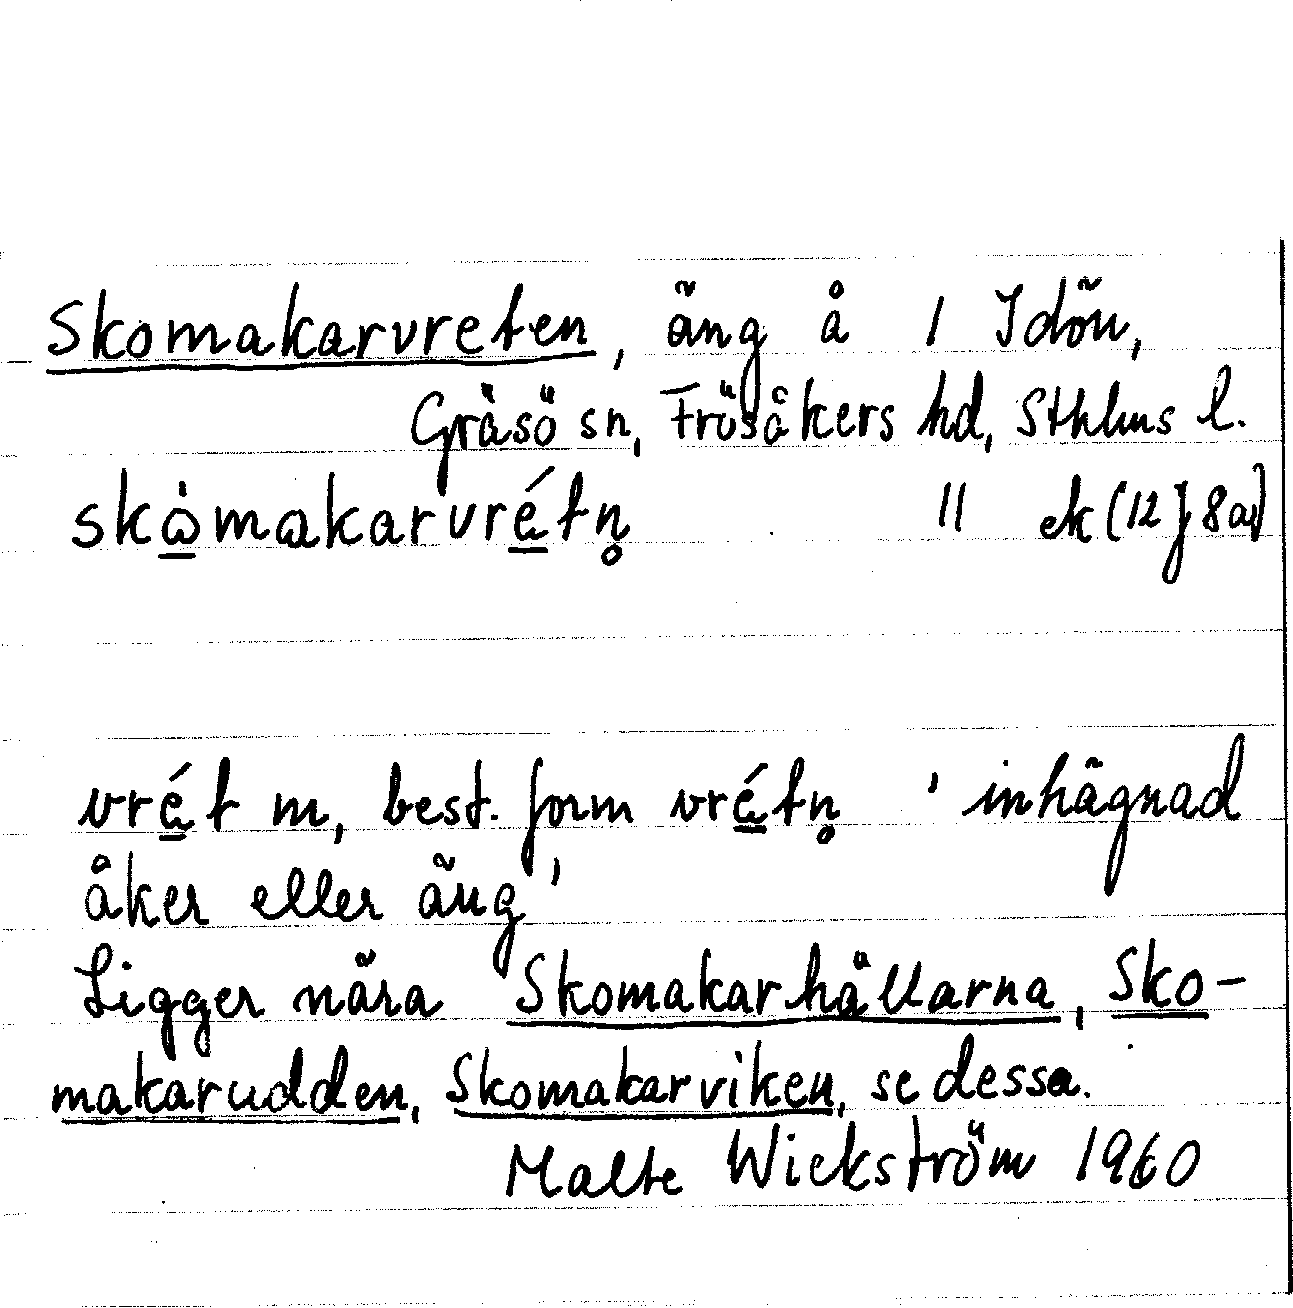 Skomakarvreten, äng å 1 Idön,
Gräsö sn, Frösåkers hd, Sthlms l.
skò̱makarvré̱tn̥ 11 ek (12 f 8 ac)
vré̱t m, best. form vré̱tn̥ 'inhägnad
åker eller äng'
Ligger nära Skomakarhällarna, Sko-
makarudden, Skomakarviken, se dessa.
Malte Wickström 1960